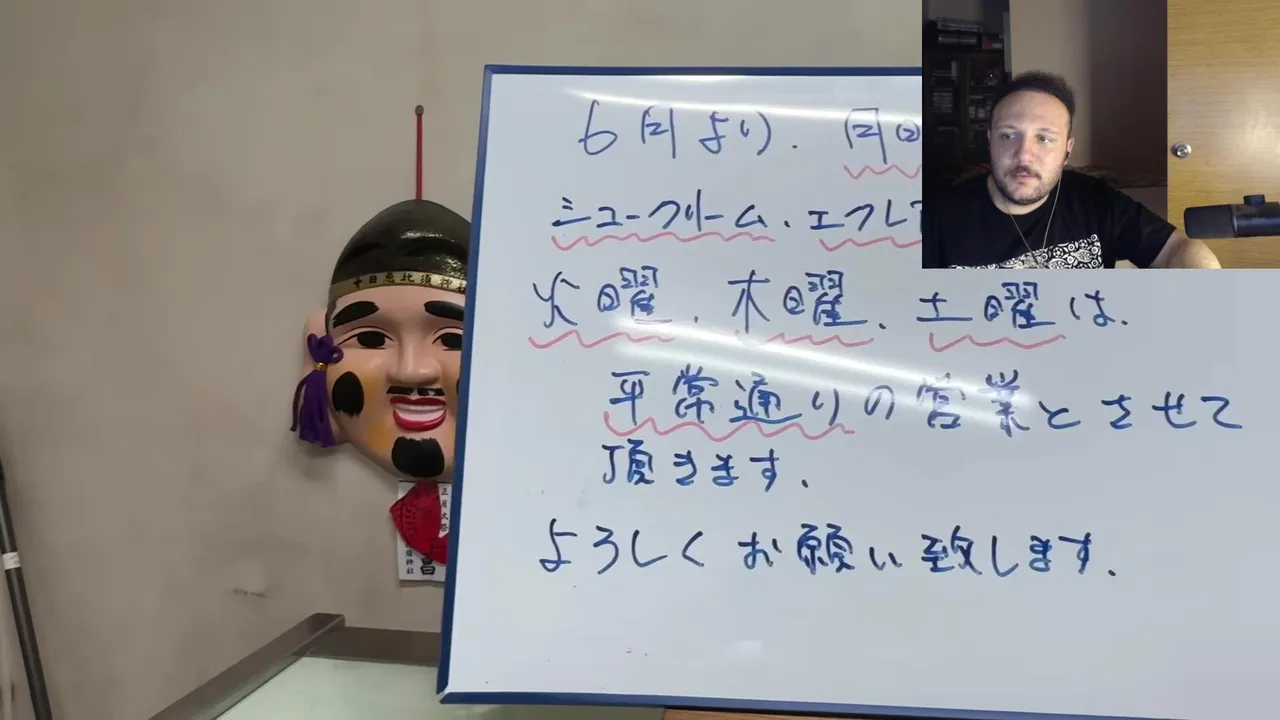 6月より、月曜
シュークリーム、エクレア
火曜、木曜、土曜は、
平常通りの営業とさせて
頂きます。
よろしくお願い致します。
十日恵比須神社
正月大祭